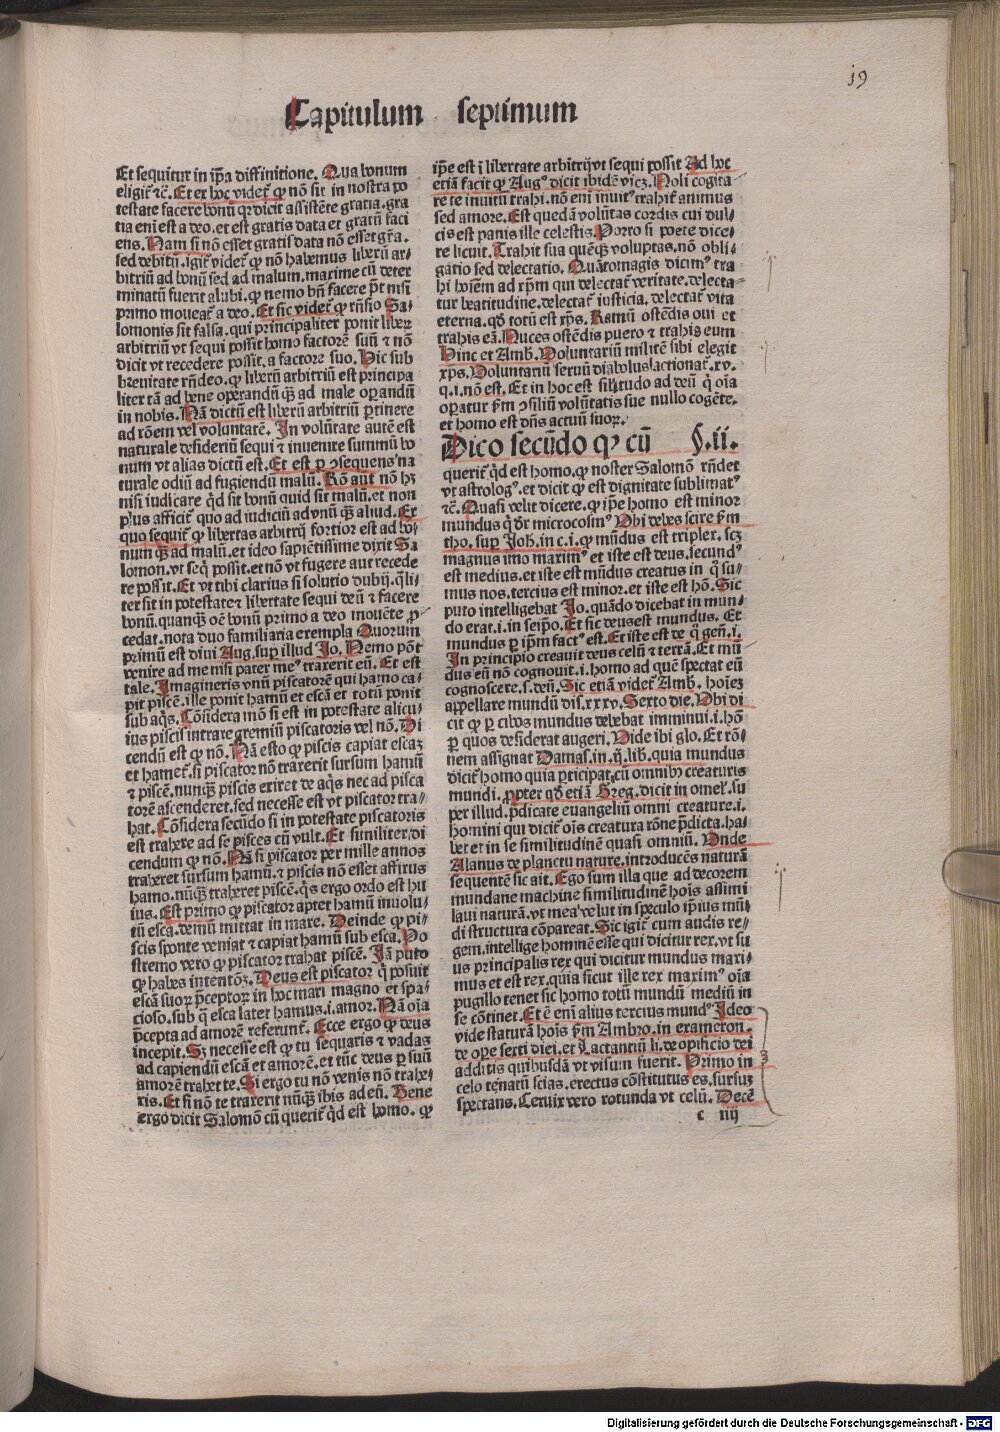 19
Capitulum septimum
Et sequitur in ip̄a diffinitione. Qua bonum
eligit̄ ⁊c̄. Et ex hoc videt̄ ꝙ nō sit in nostra po
testate facere bonū qꝛ dicit assistēte gratia. gra
tia eni est a deo. et est gratis data et gratū faci
ens. Nam si nō esset gratis data nō esset gr̄a.
sed debitū. igit̄ videt̄ ꝙ nō habemus liberū ar-
bitriū ad bonū sed ad malum. maxime cū deter
minatū fuerit alubi. ꝙ nemo bn̄ facere pt̄ nisi
primo moueat̄ a deo. Et sic videt̄ ꝙ rn̄sio Sa-
lomonis sit falsa. qui principaliter ponit liberū
arbitriū vt sequi possit homo factorē suū ⁊ nō
dicit vt recedere possit. a factore suo. Hic sub
breuitate rn̄deo. ꝙ liberū arbitriū est principa
liter tā ad bene operandū qȝ ad male operandū
in nobis. Nā dictū est liberū arbitriū ꝑtinere
ad rōem vel voluntatē. In volūtate autē est
naturale desideriū sequi ⁊ inuenire summū bo
num vt alias dictū est. Et est ꝑ ↄsequens na
turale odiū ad fugiendū malū. Rō aut̄ nō hȝ
nisi iudicare qd̄ sit bonū quid sit malū. et non
plus afficit̄ quo ad iudiciū ad vnū qȝ aliud. Ex
quo sequit̄ ꝙ libertas arbitrij fortior est ad bo-
num qȝ ad malū. et ideo sapiētissime dixit Sa
lomon. vt seqī possit. et nō vt fugere aut recede
re possit. Et vt tibi clarius si solutio dubij. q̄li-
ter sit in potestate ⁊ libertate sequi deū ⁊ facere
bonū. quanqȝ oē bonū primo a deo mouēte ꝓ
cedat. nota duo familiaria exempla Quorum
primū est diui Aug. suꝑ illud Jo. Nemo pōt
venire ad me nisi pater meꝰ traxerit eū. Et est
tale. Imagineris vnū piscatorē qui hamo ca-
pit piscē. ille ponit hamū et escā et totū ponit
sub aq̄s. Cōsidera mō si est in potestate alicu-
ius piscis intrare gremiū piscatoris vel nō. Di
cendū est ꝙ nō. Nā esto ꝙ piscis capiat escaȝ
et hamet̄. si piscator nō traxerit sursum hamū
⁊ piscē. nunqȝ piscis exiret de aq̄s nec ad pisca
torē ascenderet. sed necesse est vt piscator tra-
hat. Cōsidera secūdo si in potestate piscatoris
est trahere ad se pisces cū vult. Et similiter. di
cendum ꝙ nō. Nā si piscator per mille annos
traheret sursum hamū. ⁊ piscis nō esset affixus
hamo. nūqȝ traheret piscē. q̄s ergo ordo est hu
ius. Est primo ꝙ piscator aptet hamū inuolu-
tū esca. demū mittat in mare. Deinde ꝙ pi-
scis sponte veniat ⁊ capiat hamū sub esca. Po
stremo vero ꝙ piscator trahat piscē. Jā puto
ꝙ habes intentōȝ. Deus est piscator q̄ posuit
escā suoꝝ p̄ceptoꝝ in hoc mari magno et spa-
cioso. sub q̄ esca latet hamus. i. amor. Nā oīa
p̄cepta ad amorē referunt̄. Ecce ergo ꝙ deus
incepit. Sȝ necesse est ꝙ tu sequaris ⁊ vadas
ad capiendū escā et amorē. et tūc deus ꝑ suū
amorē trahet te. Si ergo tu nō venis nō trahe-
ris. Et si nō te traxerit nūqȝ ibis ad eū. Bene
ergo dicit Salomō cū querit̄ qd̄ est homo. ꝙ
ip̄e est ī libertate arbitrij vt sequi possit Ad hoc
etiā facit ꝙ Augꝰ dicit ibidē vicȝ. Noli cogita-
re te inuitū trahi. nō eni inuitꝰ trahit̄ animus
sed amore. Est quedā volūtas cordis cui dul-
cis est panis ille celestis. Porro si poete dice-
re licuit. Trahit sua quēqȝ voluptas. nō obli-
gatio sed delectatio. Quātomagis dicimꝰ tra
hi hoīem ad xp̄m qui delectat̄ veritate. delecta-
tur beatitudine. delectat̄ iusticia. delectat̄ vita
eterna. qd̄ totū est xp̄s. Ramū ostēdis oui et
trahis eā. Nuces ostēdis puero ⁊ trahis eum
Hinc et Amb. Voluntariū militē sibi elegit
xp̄s. Voluntariū seruū diabolus actionat̄. xv.
q. i. nō est. Et in hoc est silitudo ad deū q̄ oīa
oꝑatur ẜm ↄsiliū volūtatis sue nullo cogēte.
et homo est dn̄s actuū suoꝝ.
Dico secūdo ꝙ cū §. ii.
querit̄ qd̄ est homo. ꝙ noster Salomō rn̄det
vt astrologꝰ. et dicit ꝙ est dignitate sublimatꝰ
⁊c̄. Quasi velit dicere. ꝙ ip̄e homo est minor
mundus q̄ dr̄ microcosmꝰ Vbi debes scire ẜm
tho. suꝑ Job. in c. i. ꝙ mūdus est triplex. scȝ
magnus imo maximꝰ et iste est deus. secundꝰ
est medius. et iste est mūdus creatus in q̄ su-
mus nos. tercius est minor. et iste est hō. Sic
puto intelligebat Jo. quādo dicebat in mun-
do erat. i. in seipō. Et sic deus est mundus. Et
mundus ꝑ ip̄m factꝰ est. Et iste est de q̄ gen̄. i.
In principio creauit deus celū ⁊ terrā. Et mū
dus eū nō cognouit. i. homo ad quē spectat eū
cognoscere. s. deū. Sic etiā videt̄ Amb. hoīeȝ
appellare mundū dis. xxxv. Sexto die. Vbi di
cit ꝙ ꝑ cibos mundus debebat imminui. i. hō
ꝑ quos desiderat augeri. Vide ibi glo. Et rō-
nem assignat Damas. in. ij. lib. quia mundus
dicit̄ homo quia ꝑticipat. cū omnibꝰ creaturis
mundi. ꝓpter qd̄ etiā Greg. dicit in omel̄. su
per illud. p̄dicate euangeliū omni creature. i.
homini qui dicit̄ oīs creatura rōne p̄dicta. ha-
bet eī in se similitudinē quasi omniū. Vnde
Alanus de planctu nature. introducēs naturā
sequentē sic ait. Ego sum illa que ad decorem
mundane machine similitudinē hoīs assimi
laui naturā. vt mea velut in speculo ip̄ius mū-
di structura cōpareat. Sic igit̄ cum audis re-
gem. intellige hominē esse qui dicitur rex. vt su
us principalis rex qui dicitur mundus maxi-
mus et est rex. quia sicut ille rex maximꝰ oīa
pugillo tenet sic homo totū mundū mediū in
se cōtinet. Et ē eni alius tercius mundꝰ Ideo
vide staturā hoīs ẜm Ambro. in exameron.
de oꝑe sexti diei. et Lactantiū li. de opificio dei
additis quibusdā vt visum fuerit. Primo in
celo tenatū scias. erectus cōstitutus es. sursuȝ
spectans. Ceruix vero rotunda vt celū. Decē
c iiij
Digitalisierung gefördert durch die Deutsche Forschungsgemeinschaft - DFG